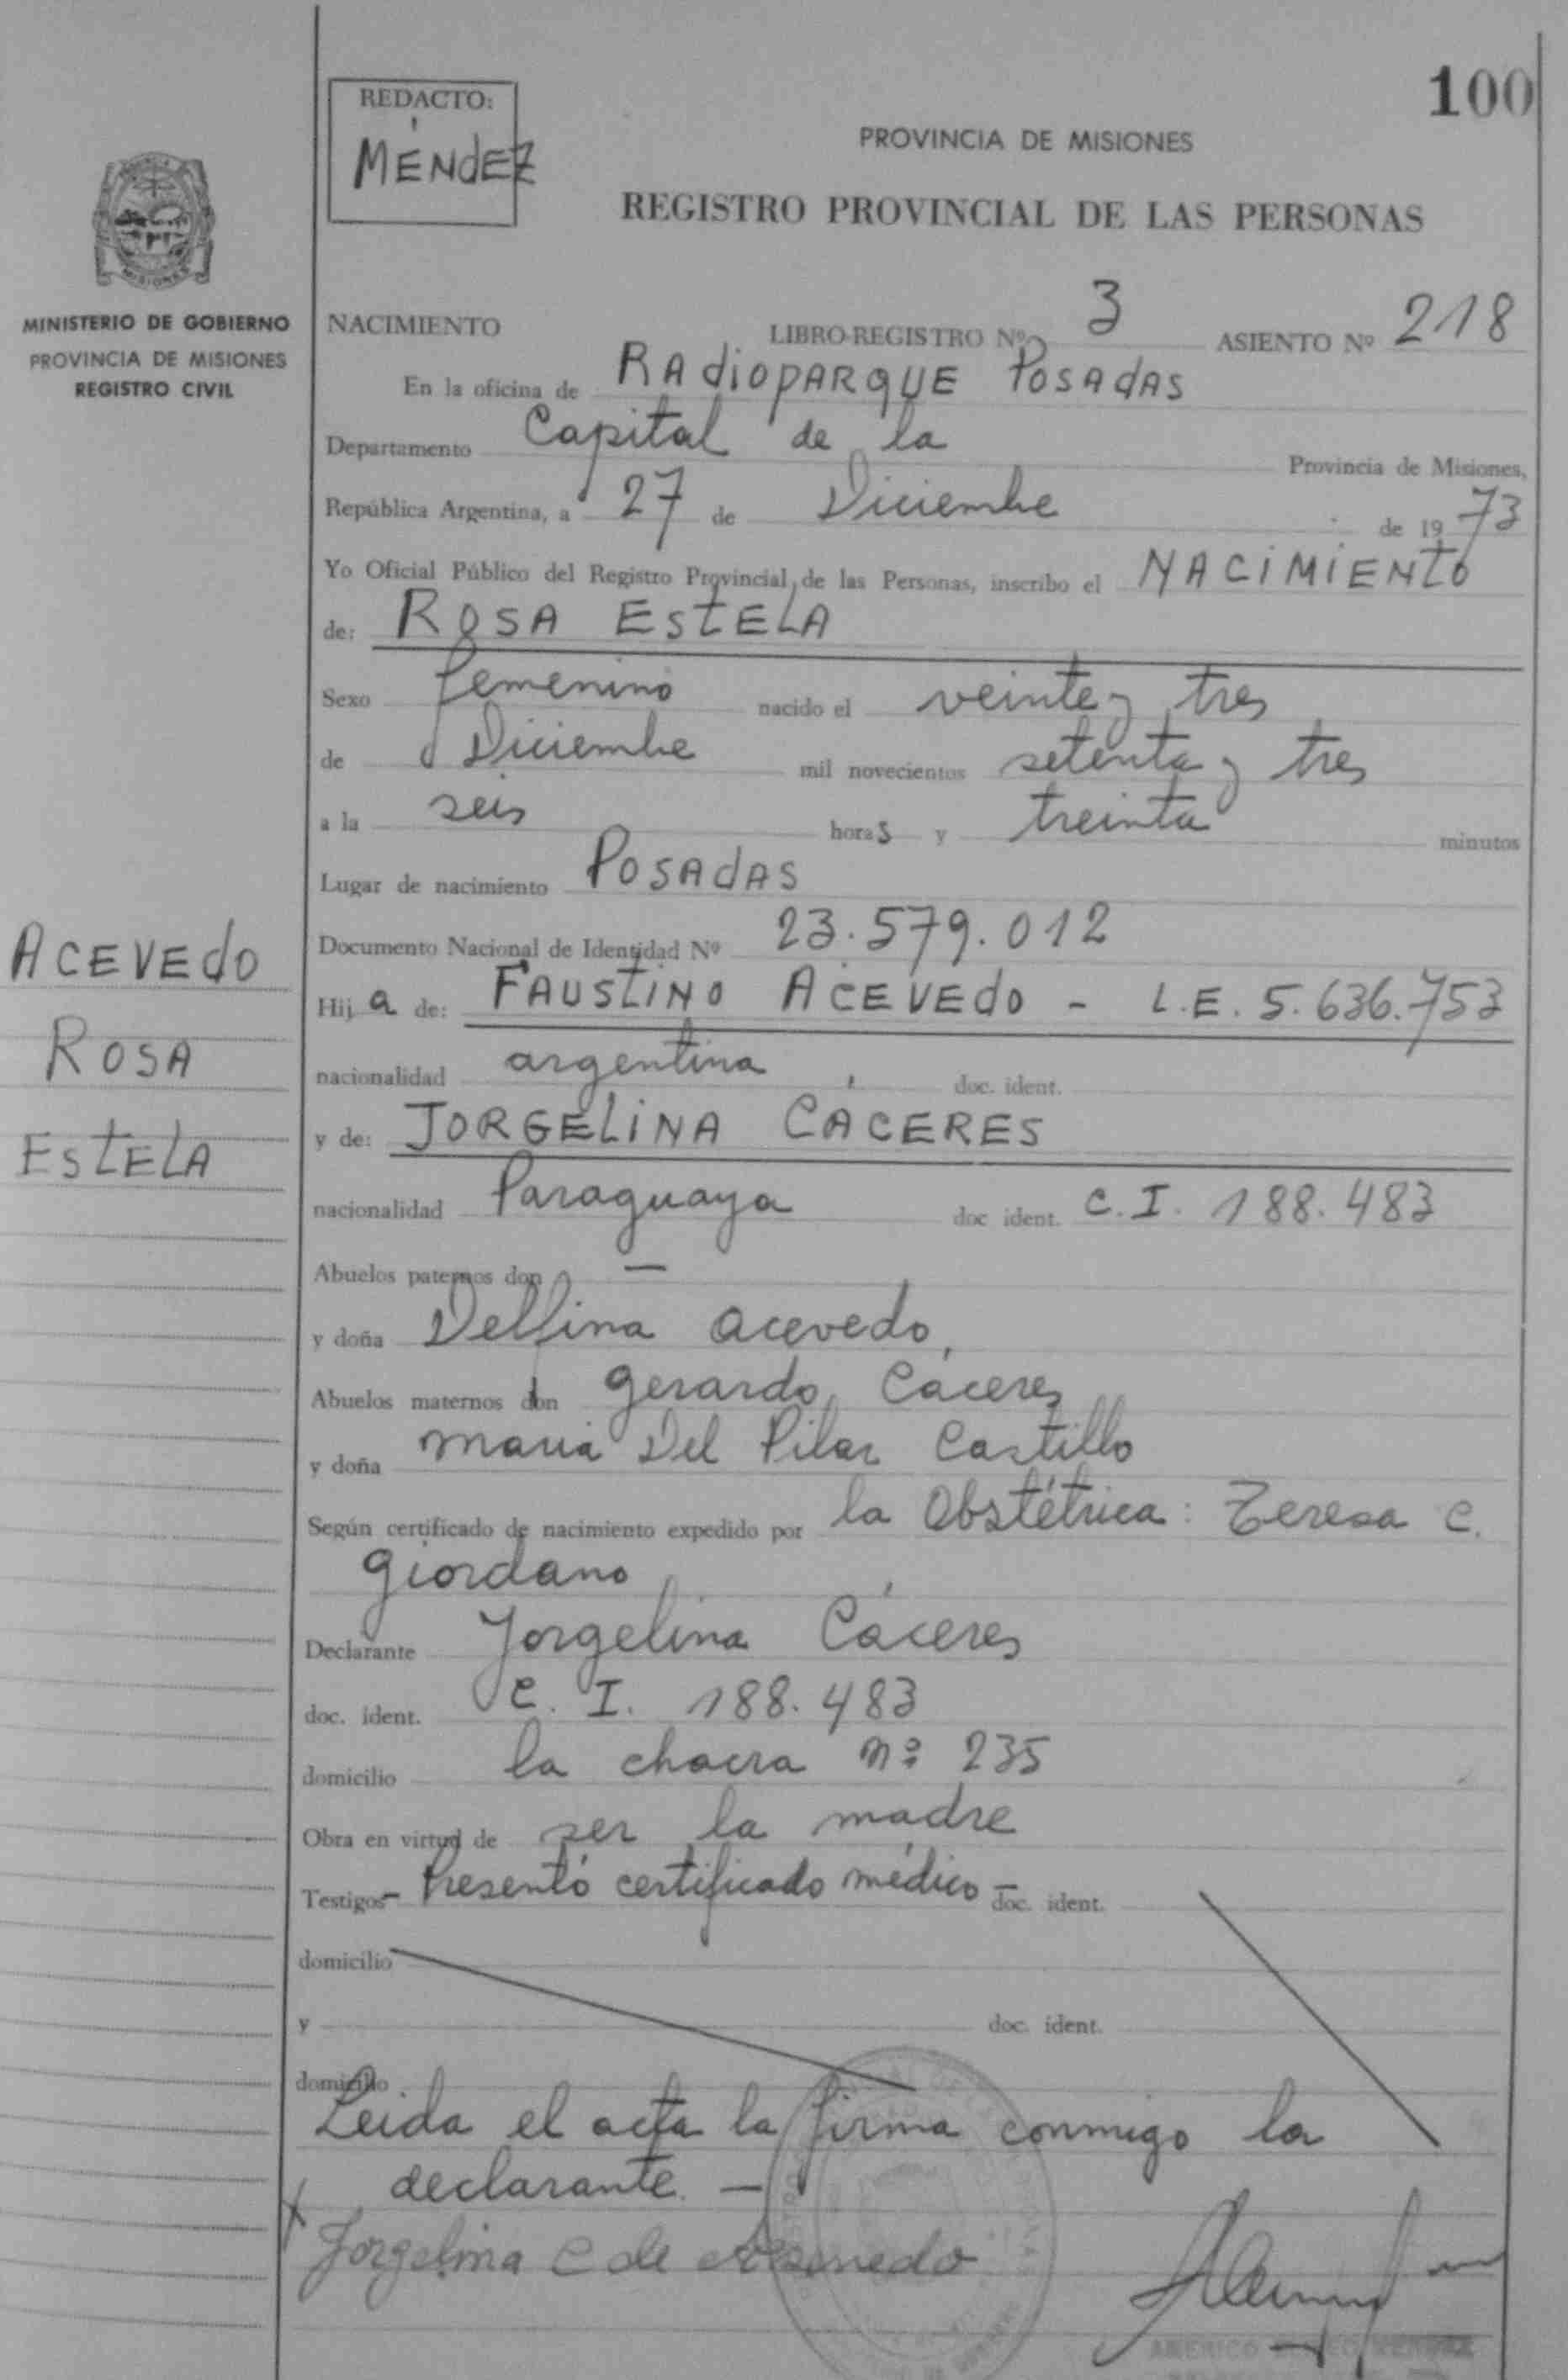 100
REDACTO:
MÉNdEZ
PROVINCIA DE MISIONES
REGISTRO PROVINCIAL DE LAS PERSONAS
MISIONES
MINISTERIO DE GOBIERNO
PROVINCIA DE MISIONES
REGISTRO CIVIL
NACIMIENTO LIBRO-REGISTRO Nº 3 ASIENTO Nº 218
En la oficina de RAdiopARqUE POSAdAS
Departamento Capital de la Provincia de Misiones,
República Argentina, a 27 de Diciembre de 1973
Yo Oficial Público del Registro Provincial de las Personas, inscribo el NACiMiENtO
de: ROSA EStELA
Sexo femenino nacido el veinte y tres
de Diciembre mil novecientos setenta y tres
a la seis horas y treinta minutos
Lugar de nacimiento POSAdAS
Documento Nacional de Identidad Nº 23.579.012
Hija de: FAUStiNO ACEVEdO - L.E. 5.636.753
nacionalidad argentina doc. ident.
y de: JORGELiNA CÁCERES
nacionalidad Paraguaya doc ident. C.I. 188.483
Abuelos paternos don —
y doña Delfina Acevedo
Abuelos maternos don Gerardo Cáceres
y doña María Del Pilar Castillo
Según certificado de nacimiento expedido por la Obstétrica: Teresa C.
Giordano
Declarante Jorgelina Cáceres
doc. ident. C. I. 188.483
domicilio la chacra nº 235
Obra en virtud de ser la madre
Testigos- Presentó certificado médico - doc. ident.
domicilio
y doc. ident.
domicilio
Leida el acta la firma conmigo la
declarante. —
Jorgelina C de Acevedo
AMERICO
ACEVEdO
ROSA
EStELA